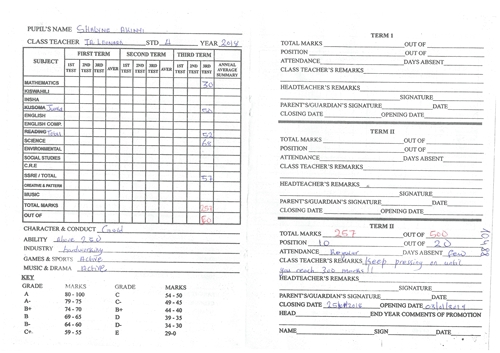 PUPIL'S NAME Sharyne Akinyi
CLASS TEACHER STD. 4 YEAR 2014
SUBJECT FIRST TERM SECOND TERM THIRD TERM ANNUAL AVERAGE SUMMARY
1ST TEST 2ND TEST 3RD TEST AVER 1ST TEST 2ND TEST 3RD TEST AVER 1ST TEST 2ND TEST 3RD TEST
MATHEMATICS 30
KISWAHILI
INSHA
AUSOMA 50
ENGLISH
ENGLISH COMP.
READING 52
SCIENCE 68
ENVIRONMENTAL
SOCIAL STUDIES
C.R.E
SSRE / TOTAL 57
CREATIVE & PATTERN
MUSIC
TOTAL MARKS 257
OUT OF
CHARACTER & CONDUCT Good
ABILITY Above 250
INDUSTRY hardworking
GAMES & SPORTS Active
MUSIC & DRAMA Active
KEY
GRADE MARKS GRADE MARKS
A 80 - 100 C 54 - 50
A- 79 - 75 C- 49 - 45
B+ 74 - 70 B+ 44 - 40
B 69 - 65 D 39 - 35
B- 64 - 60 D- 34 - 30
C+ 59 - 55 E 29-0
TERM I
TOTAL MARKS OUT OF
POSITION OUT OF
ATTENDANCE DAYS ABSENT
CLASS TEACHER'S REMARKS
HEADTEACHER'S REMARKS
SIGNATURE
PARENT'S/GUARDIAN'S SIGNATURE DATE
CLOSING DATE OPENING DATE
TERM II
TOTAL MARKS OUT OF
POSITION OUT OF
ATTENDANCE DAYS ABSENT
CLASS TEACHER'S REMARKS
HEADTEACHER'S REMARKS
SIGNATURE
PARENT'S/GUARDIAN'S SIGNATURE DATE
CLOSING DATE OPENING DATE
TERM II
TOTAL MARKS 257 OUT OF 500
POSITION 10 OUT OF 20
ATTENDANCE Regular DAYS ABSENT Few
CLASS TEACHER'S REMARKS Keep pressing on until
you reach 300 marks!!
HEADTEACHER'S REMARKS
SIGNATURE
PARENT'S/GUARDIAN'S SIGNATURE DATE
CLOSING DATE OPENING DATE
HEAD END YEAR COMMENTS OF PROMOTION
NAME SIGN DATE